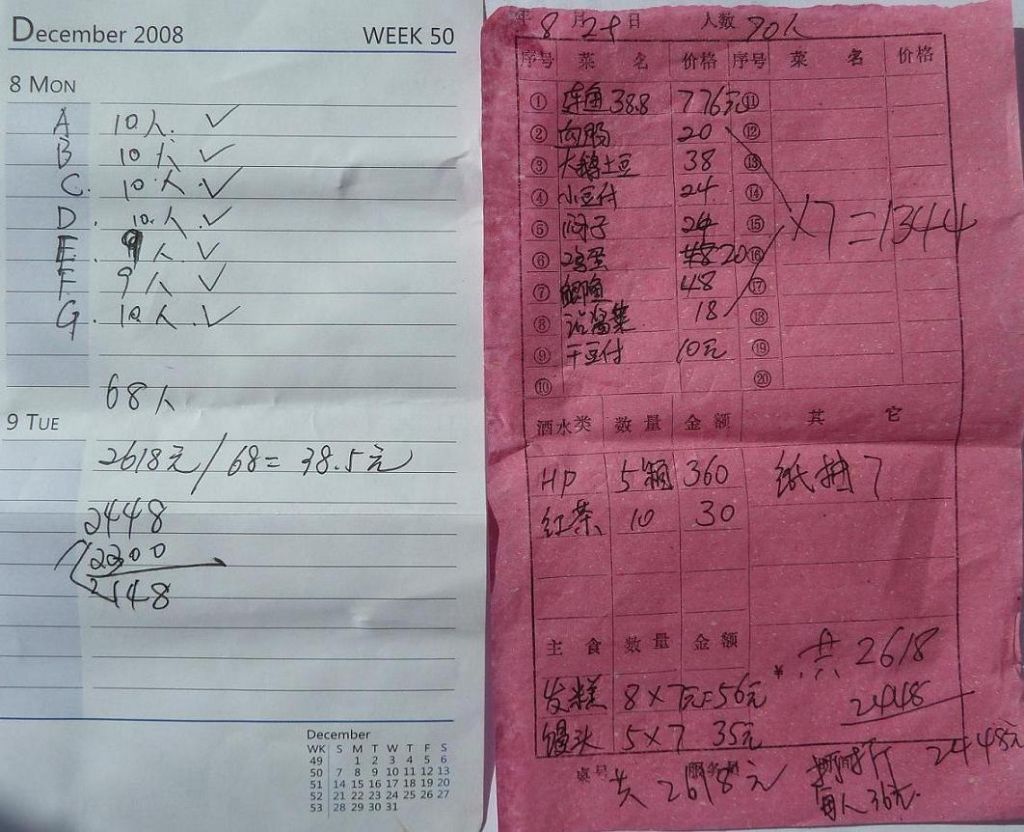 December 2008 WEEK 50
8 MON
A 10人. ✓
B 10人 ✓
C. 10人. ✓
D. 10人. ✓
E. 9人. ✓
F 9人 ✓
G. 10人. ✓
68人
9 TUE
2618元/68=38.5元
2448
2300
2148
December
WK S M T W T F S
49 1 2 3 4 5 6
50 7 8 9 10 11 12 13
51 14 15 16 17 18 19 20
52 21 22 23 24 25 26 27
53 28 29 30 31
年 8 月 29 日 人数 70人
序号 菜 名 价格 序号 菜 名 价格
① 388 776元 ⑪
② 肉肠 20 ⑫
③ 大鹅土豆 38 ⑬
④ 小豆付 24 ⑭
⑤ 焖子 24 ⑮
⑥ 鸡蛋 20 ⑯
⑦ 鲫鱼 48 ⑰
⑧ 沾酱菜 18 ⑱
⑨ 干豆付 10元 ⑲
⑩ ⑳
×7=1344
酒水类 数量 金额 其 它
HP 5箱 360 纸抽7
红茶 10 30
主 食 数量 金额
¥ 共 2618
发糕 8×7元=56元 2448
馒头 5×7 35元
桌号 服务员
共 2618元 2448元
每人36元.